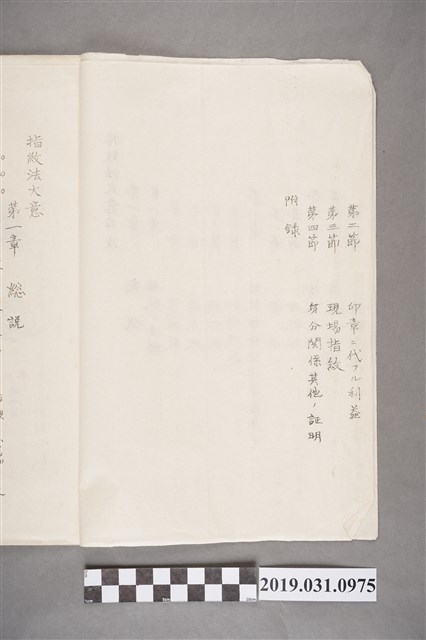 第二節 印章ニ代フル利益
第三節 現場指紋
第四節 身分関係其他ノ証明
附録
指紋法大意
第一章 総説
2019.031.0975